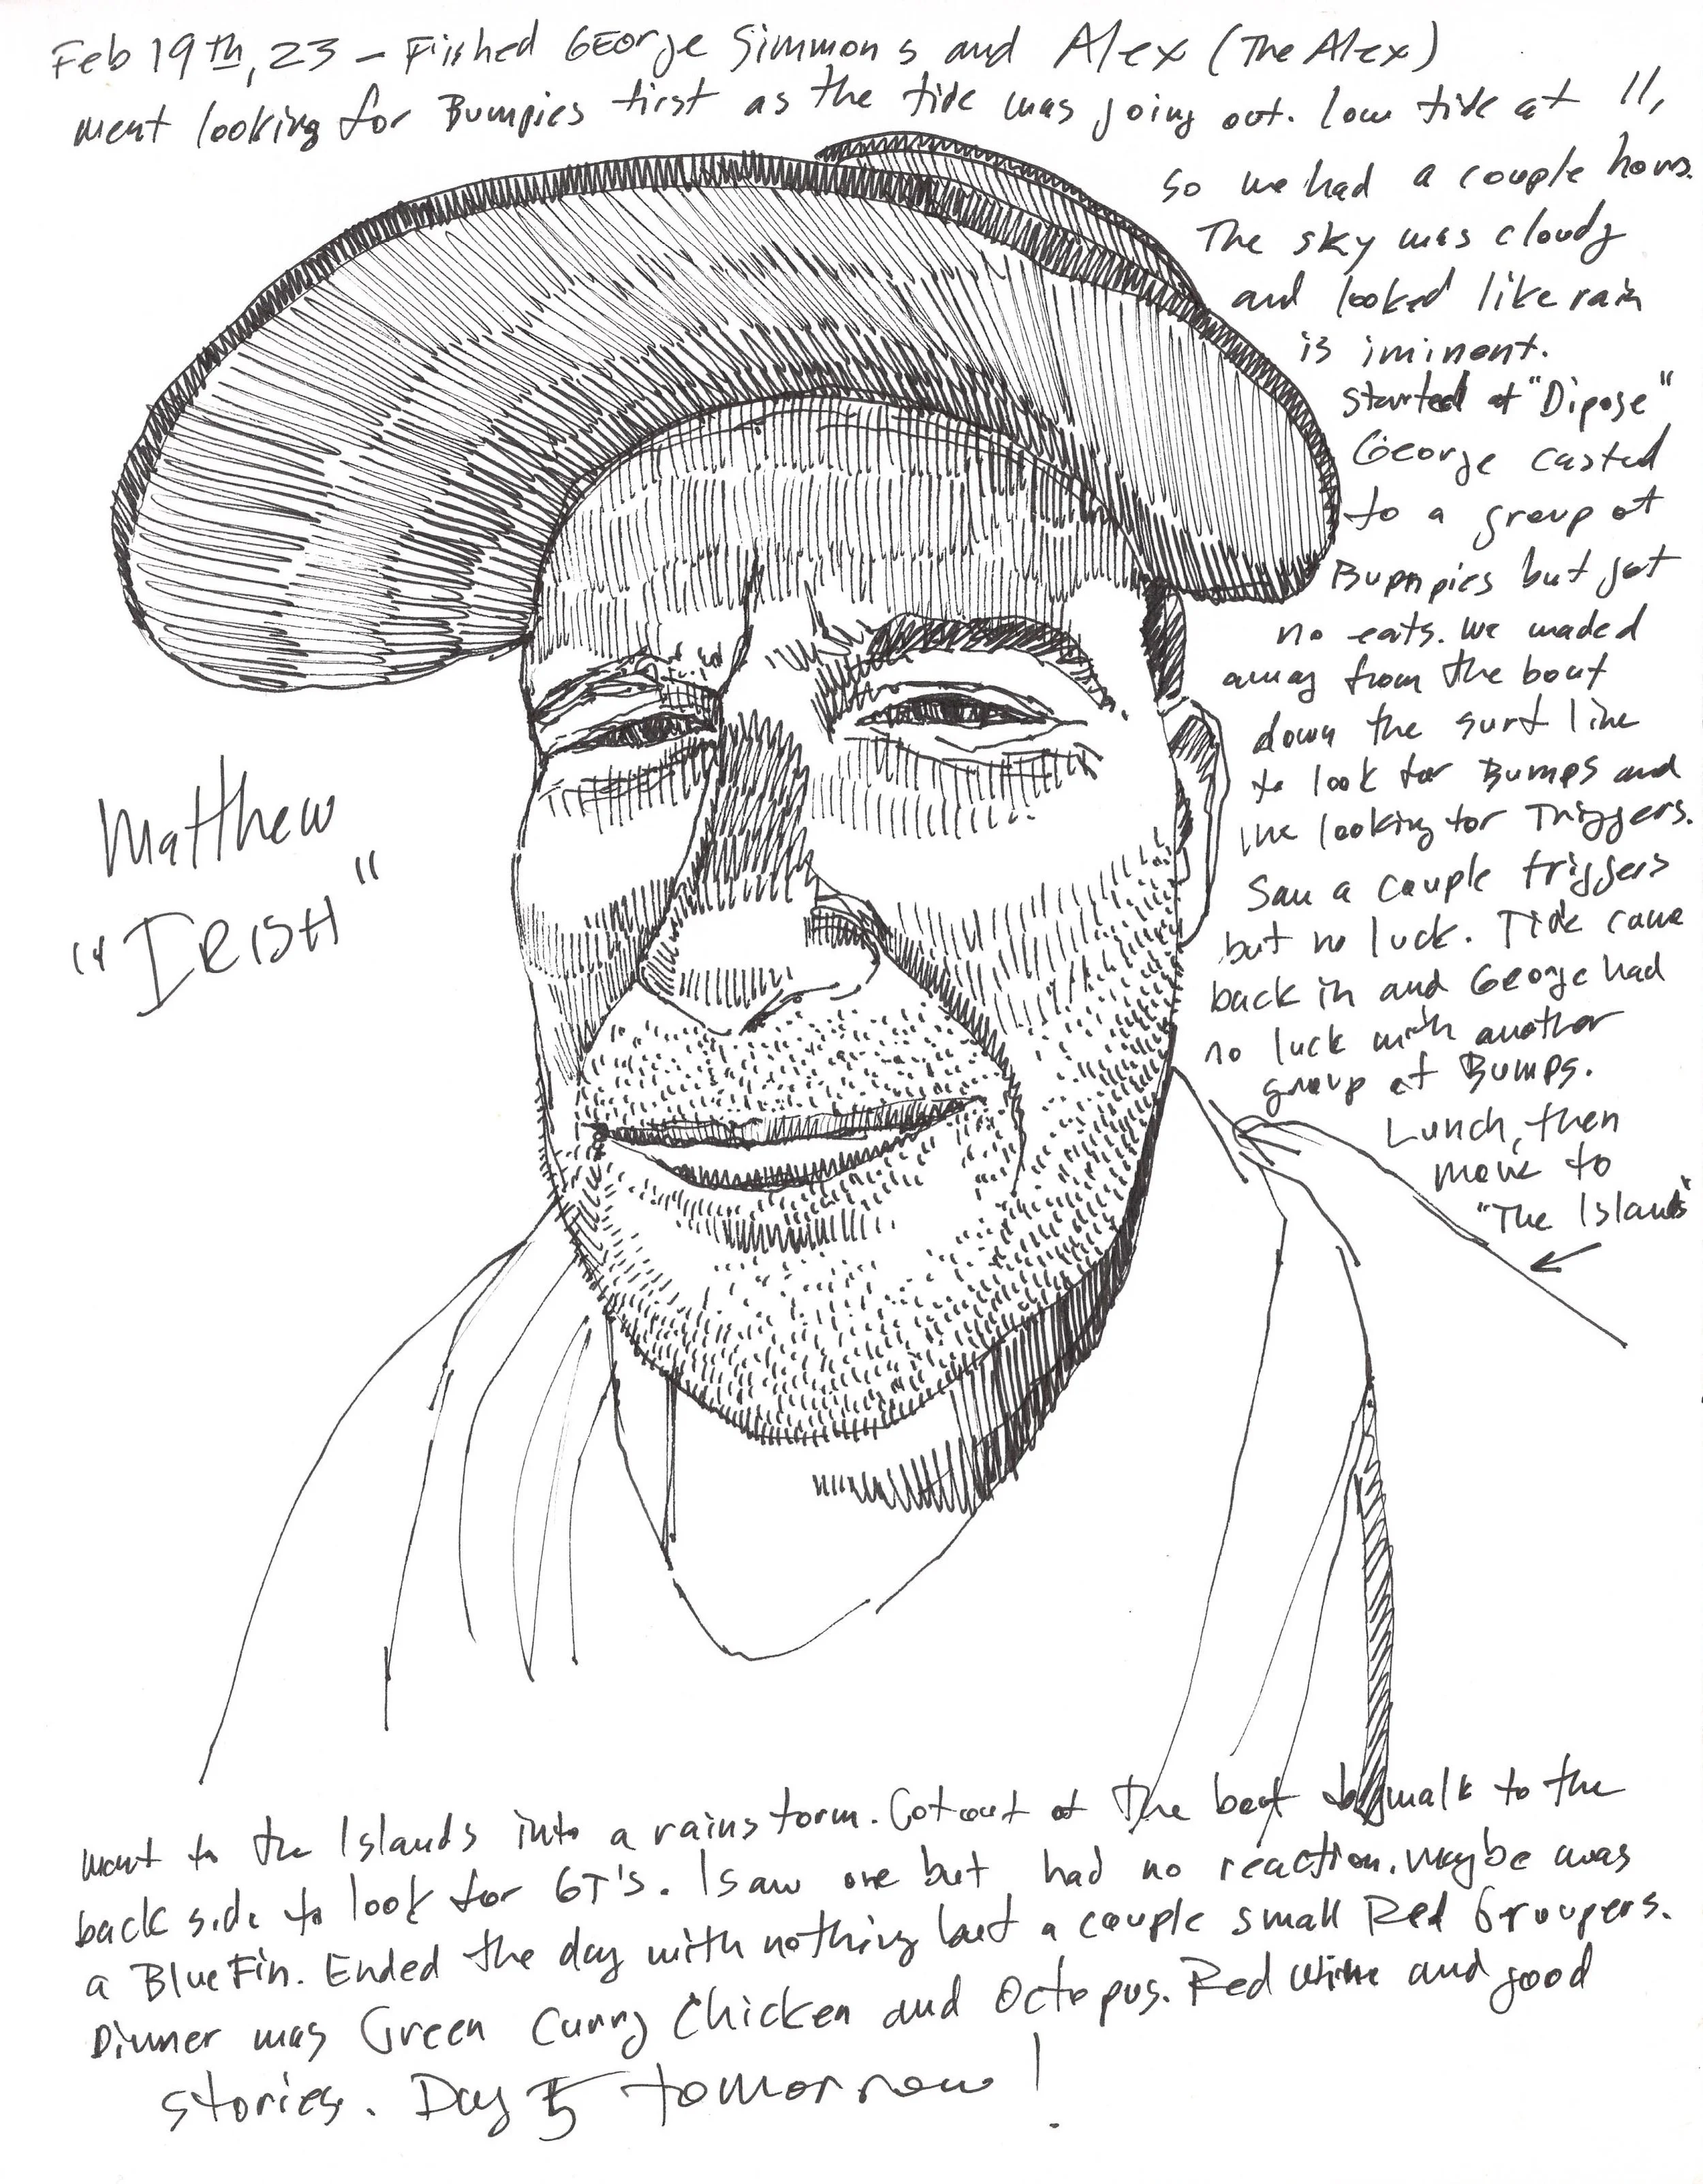 Feb 19th, 23 - Fished George Simmons and Alex (The Alex)
went looking for Bumpies first as the tide was going out. low tide at 11,
so we had a couple hours.
The sky was cloudy
and looked like rain
is iminent.
Started at "Dipose"
George casted
to a group of
Bumpies but got
no eats. We waded
away from the boat
down the surf line
to look for Bumps and
me looking for Triggers.
Saw a couple triggers
but no luck. Tide came
back in and George had
no luck with another
group of Bumps.
Lunch, then
move to
"The Islands"
Matthew
"IRISH"
went to the Islands into a rainstorm. Got out of the boat to walk to the
back side to look for GT's. I saw one but had no reaction. Maybe was
a BlueFin. Ended the day with nothing but a couple small Red Groupers.
Dinner was Green Curry Chicken and Octopus. Red Wine and good
stories. Day 5 tomorrow!